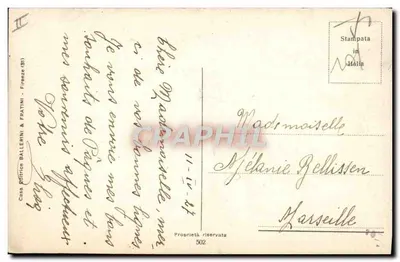 II
Stampata
in
Italia
11-IV-27
Chère Mademoiselle, mer-
ci de vos bonnes lignes.
Je vous envoie mes bons
souhaits de Pâques et
mes souvenirs affectueux
Votre
Mademoiselle
Mélanie Bellissen
Marseille
CPARAMA
Casa Editrice BALLERINI & FRATINI - Firenze
Proprietà riservata
502